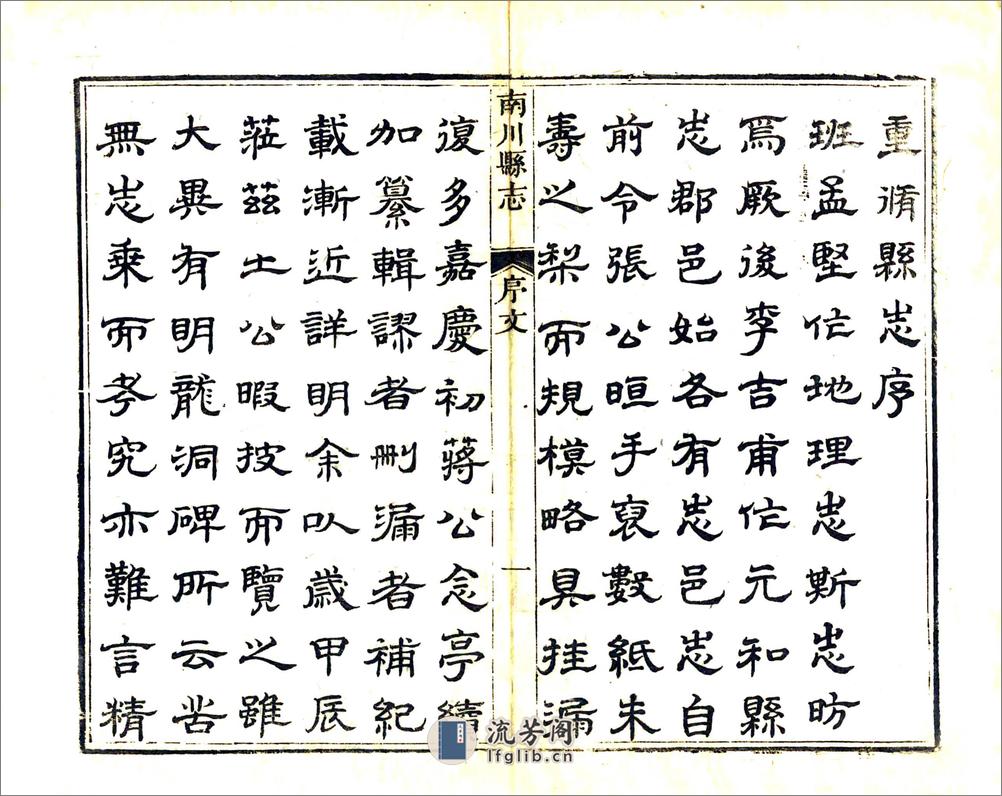 重脩縣志序
班孟堅作地理志斯志昉
焉厥後李吉甫作元和縣
志郡邑始各有志邑志自
前令張公晅手裒數紙未
壽之梨而規模略具挂漏
南川縣志
序文
一
復多嘉慶初蔣公念亭續
加纂輯謬者刪漏者補紀
載漸近詳明余以歲甲辰
蒞茲土公暇披而覽之雖
大異有明龍洞碑所云苦
無志乘而考究亦難言精
流芳阁
lfglib.cn